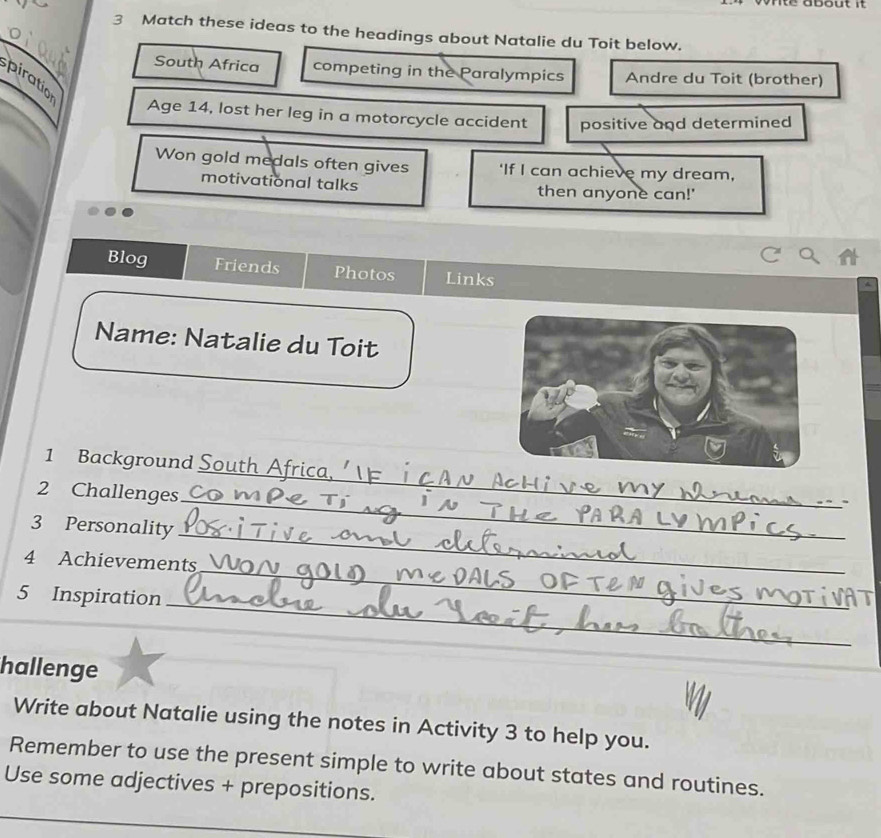 Write about it
3 Match these ideas to the headings about Natalie du Toit below.
spiration
South Africa
competing in the Paralympics
Andre du Toit (brother)
Age 14, lost her leg in a motorcycle accident
positive and determined
Won gold medals often gives
motivational talks
'If I can achieve my dream,
then anyone can!'
Blog Friends Photos Links
Name: Natalie du Toit
1 Background South Africa, 'IF i CAN ACHive my ...
2 Challenges competing iN THe PARALYMPics
3 Personality Positive and determined
4 Achievements WoN gOlD MeDALS OFTeN gives MOTiVAT
5 Inspiration du Toit, her brother
hallenge
Write about Natalie using the notes in Activity 3 to help you.
Remember to use the present simple to write about states and routines.
Use some adjectives + prepositions.